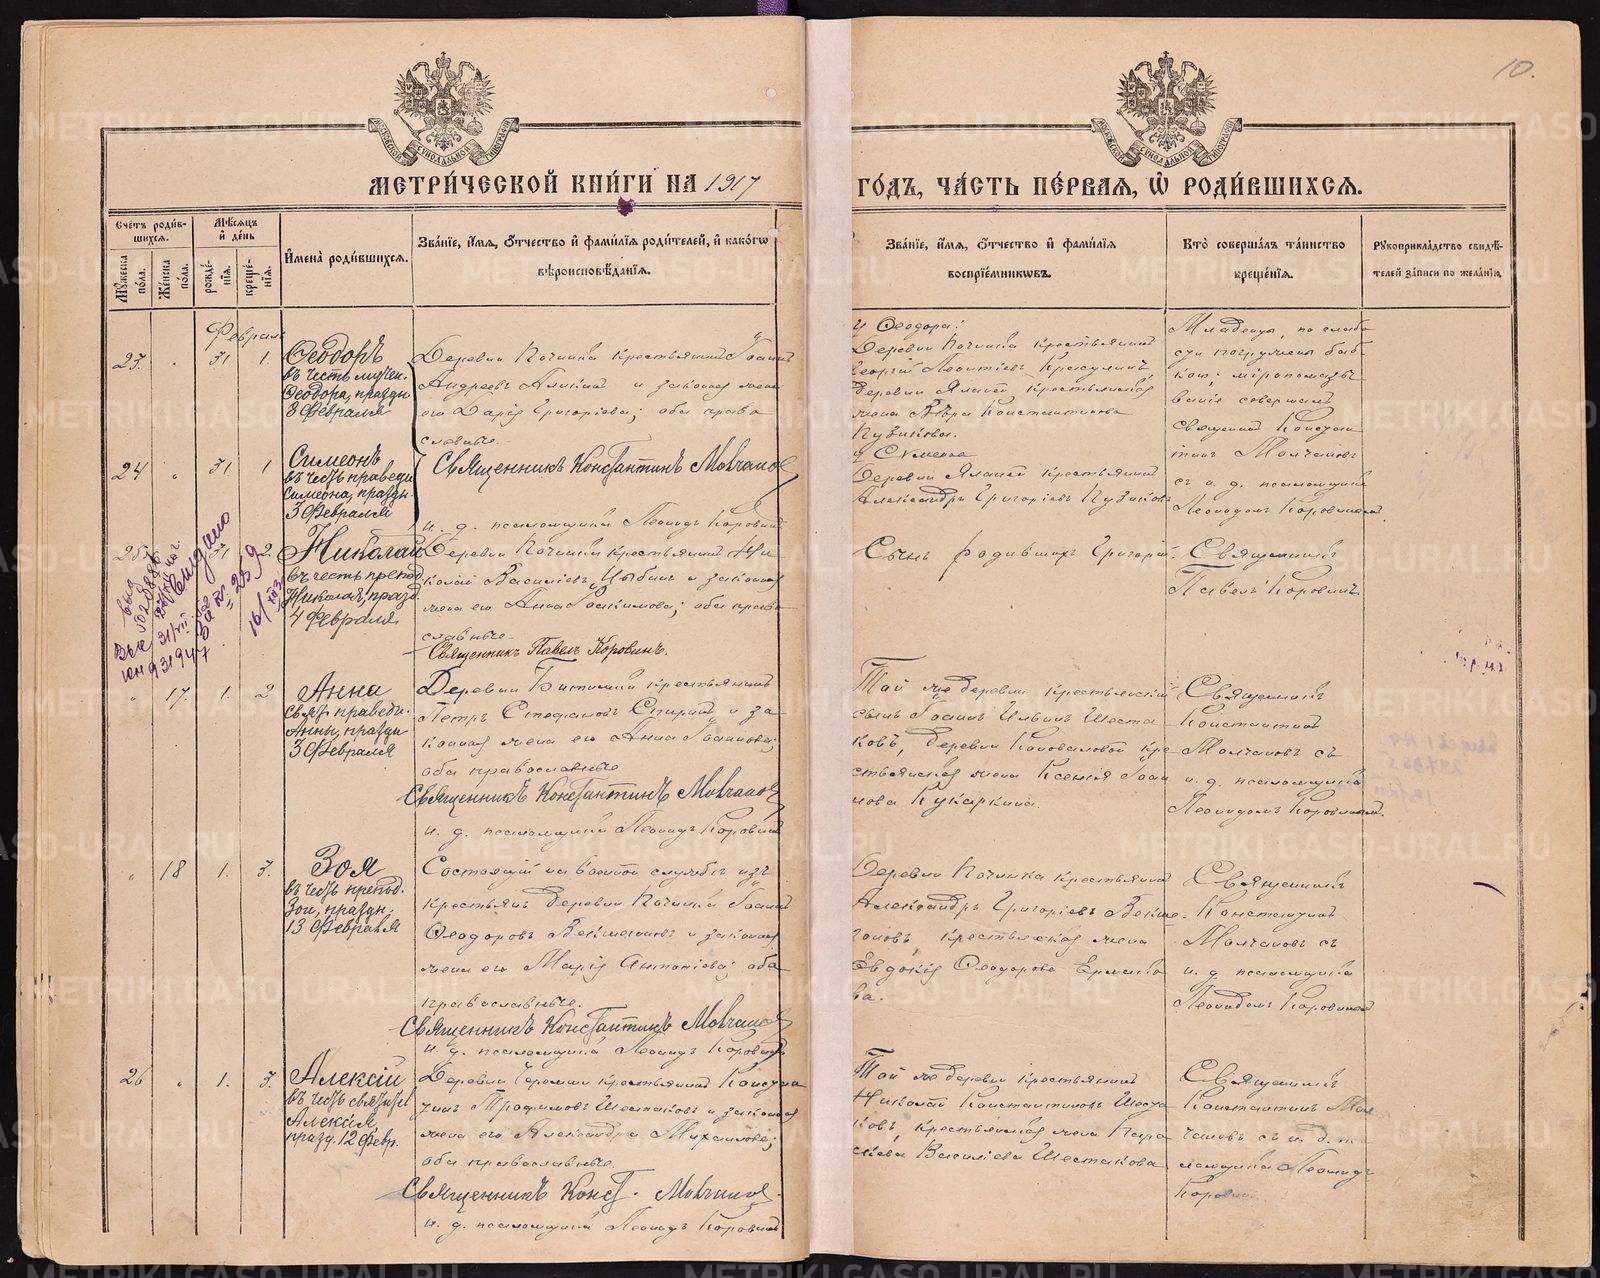 10.
МЕТРИЧЕСКОЙ КНИГИ НА 1917
ГОДЪ, ЧАСТЬ ПЕРВАЯ, Ѡ РОДИВШИХСЯ.
Счетъ родив-
шихся.
Мѣсяцъ
и день
Мужеска
пола.
Женска
пола.
рожде-
нія.
креще-
нія.
Имена родившихся.
Званіе, имя, отчество и фамилія родителей, и какого
вѣроисповѣданія.
Званіе, имя, отчество и фамилія
воспріемниковъ.
Кто совершалъ таинство
крещенія.
Рукоприкладство свидѣ-
телей записи по желанію
Февраль
23. " 31 1
Ѳеодоръ
въ честь мучен.
Ѳеодора, праздн.
8 Февраля
Деревни Починка крестьянинъ Іоаннъ
Андреевъ и законная жена
его Дарія Григоріева; оба право
славные.
у Ѳеодора:
Деревни Починка крестьянинъ
Георгій Леонтіевъ
деревни крестьянская
жена Вѣра Константинова
Пузикова.
Младенцы, по слабо
сти погружены баб-
кою; мѵропомаза
ніе совершалъ
священникъ Констан
тинъ Молчановъ
съ и. д. псаломщика
Леонидомъ Коровинымъ.
24 " 31 1
Симеонъ
въ честь праведн.
Симеона, праздн.
3 Февраля
Священникъ Константинъ Молчановъ
и. д. псаломщика Леонидъ Коровинъ
у Симеона
Деревни крестьянинъ
Александръ Григоріевъ Пузиковъ
25. " 31 2
Николай
въ честь препод.
Николая, празд.
4 Февраля
Деревни Починка крестьянинъ Ни
колай Василіевъ Цыбинъ и законная
жена его Анна Іоакимова; оба право
славные
Священникъ Павелъ Коровинъ.
Сынъ родившихъ Григорій
Священникъ
Павелъ Коровинъ.
" 17. 1. 2
Анна
свят. праведн.
Анны, праздн
3 Февраля
Деревни крестьянинъ
Петръ Стефановъ и за
конная жена его Анна Іоаннова;
оба православные
Священникъ Константинъ Молчановъ
и. д. псаломщика Леонидъ Коровинъ
Той же деревни крестьянскій
сынъ Іоаннъ Шеста
ковъ, деревни Коноваловой кре
стьянская жена Ксенія Іоан
нова Кукаркина.
Священникъ
Константинъ
Молчановъ съ
и. д. псаломщика
Леонидомъ Коровинымъ.
" 18 1. 3.
Зоя
въ честь препод.
Зои, праздн.
13 Февраля
Состоящій на военной службѣ изъ
крестьянъ деревни Починка Іоаннъ
Ѳеодоровъ и законная
жена его Марія Антоніева; оба
православные.
Священникъ Константинъ Молчановъ
и. д. псаломщика Леонидъ Коровинъ
Деревни Починка крестьянинъ
Александръ Григоріевъ
крестьянская жена
Евдокія Ѳеодорова Ермако
ва.
Священникъ
Константинъ
Молчановъ съ
и. д. псаломщика
Леонидомъ Коровинымъ
26 " 1. 3.
Алексій
въ честь святит.
Алексія,
празд. 12 Февр.
Деревни крестьянинъ Констан
тинъ Трофимовъ Шестаковъ и законная
жена его Александра Михаилова;
оба православные.
Священникъ Конст. Молчановъ.
и. д. псаломщика Леонидъ Коровинъ
Той же деревни крестьянинъ
Николай Константиновъ Шеста
ковъ, крестьянская жена Пара
скева Василіева Шестакова
Священникъ
Константинъ Мол
чановъ съ и. д. пса
ломщика Леонидъ
Коровинъ